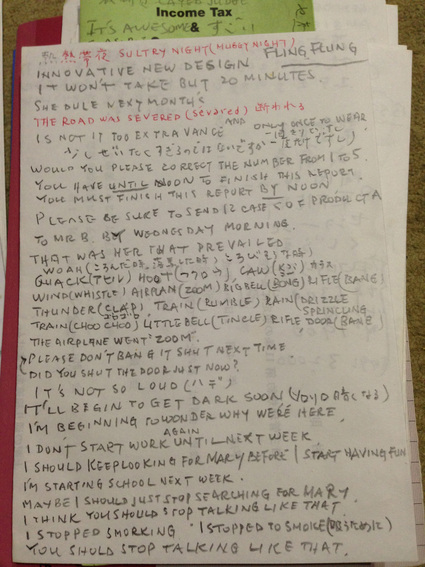 Income Tax
IT'S AWESOME & すごい
熱帯夜 SULTRY NIGHT (MUGGY NIGHT)
FLING, FLUNG
INNOVATIVE NEW DESIGN
IT WON'T TAKE BUT 20 MINUTES.
SHE DULE NEXT MONTH'S
THE ROAD WAS SEVERED (Severed) 断われる
IS NOT IT TOO EXTRAVANCE AND ONLY ONCE TO WEAR
WOULD YOU PLEASE CORRECT THE NUMBER FROM 1 TO 5
YOU HAVE UNTIL NOON TO FINISH THIS REPORT.
YOU MUST FINISH THIS REPORT BY NOON
PLEASE BE SURE TO SEND 12 CASES OF PRODUCT A
TO MR B. BY WEDNESDAY MORNING.
THAT WAS HER THAT PREVAILED
WOAH (ころんだ時
QUACK (アヒル) HOOT (フクロウ), CAW カラス
WIND (WHISTLE) AIRPLAN (ZOOM) BIG BELL (BONG) RIFLE (BANG)
THUNDER (CLAP) TRAIN (RUMBLE) RAIN (DRIZZLE
ゴロゴロ SPRINCLING
TRAIN (CHOO CHOO) LITTLE BELL (TINCLE) RIFLE DOOR (BANG)
THE AIRPLANE WENT "ZOOM".
PLEASE DON'T BANG IT SHUT NEXT TIME
DID YOU SHUT THE DOOR JUST NOW?
IT'S NOT SO LOUD (ハデ)
IT'LL BEGIN TO GET DARK SOON
I'M BEGINNING TO WONDER WHY WE'RE HERE.
AGAIN
I DON'T START WORK UNTIL NEXT WEEK.
I SHOULD KEEP LOOKING FOR MARY BEFORE I START HAVING FUN
I'M STARTING SCHOOL NEXT WEEK.
MAYBE I SHOULD JUST STOP SEARCHING FOR MARY
I THINK YOU SHOULD STOP TALKING LIKE THAT.
I STOPPED SMORKING I STOPPED TO SMOKE
YOU SHOLD STOP TALKING LIKE THAT.